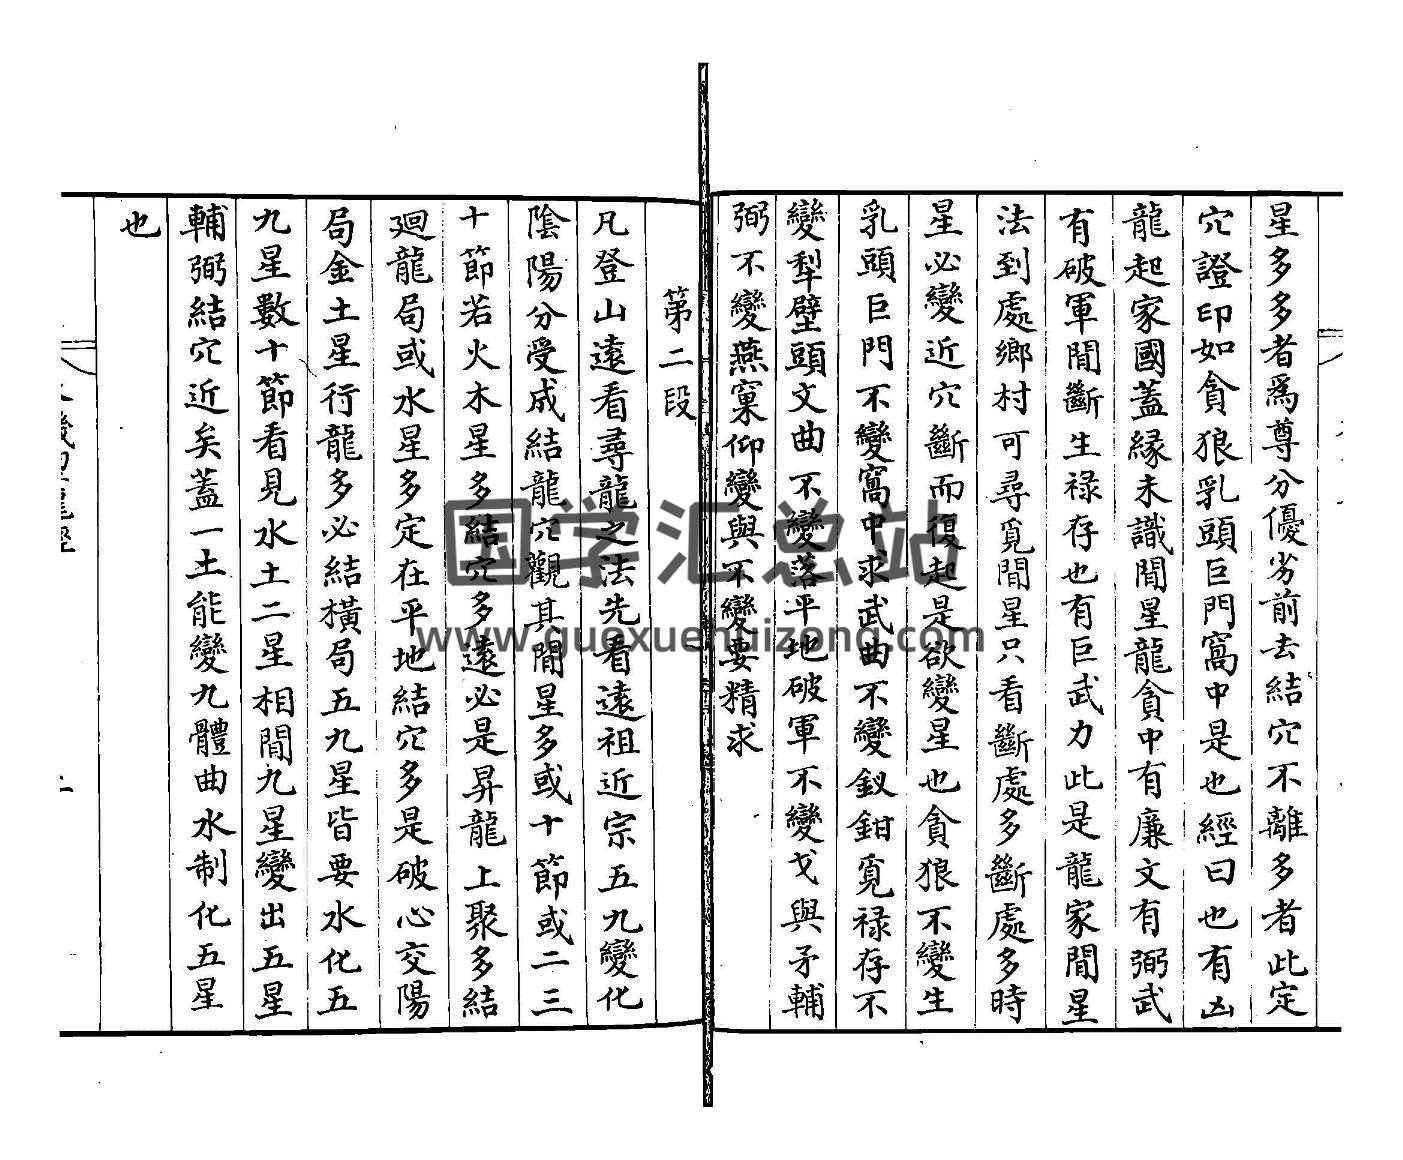 星多多者爲尊分優劣前去結穴不離多者此定
穴證印如貪狼乳頭巨門窩中是也經曰也有凶
龍起家國蓋緣未識間星龍貪中有廉文有弼武
有破軍間斷生祿存也有巨武力此是龍家間星
法到處鄉村可尋覓間星只看斷處多斷處多時
星必變近穴斷而復起是欲變星也貪狼不變生
乳頭巨門不變窩中求武曲不變釵鉗覓祿存不
變犁壁頭文曲不變落平地破軍不變戈與矛輔
弼不變燕窠仰變與不變要精求
第二段
凡登山遠看尋龍之法先看遠祖近宗五九變化
陰陽分受成結龍穴觀其間星多或十節或二三
十節若火木星多結穴多遠必是昇龍上聚多結
廻龍局或水星多定在平地結穴多是破心交陽
局金土星行龍多必結橫局五九星皆要水化五
九星數十節看見水土二星相間九星變出五星
輔弼結穴近矣蓋一土能變九體曲水制化五星
也
国学汇总站
www.guoxuehuizong.com